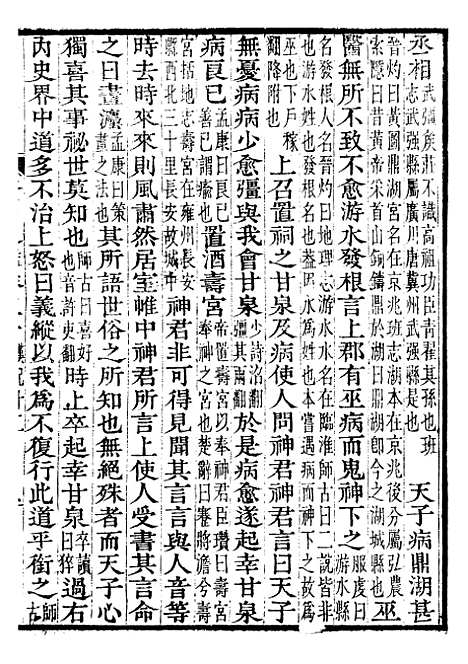 丞相武彊矦莊不識高祖功臣青翟其孫也班志武彊縣屬廣川唐冀州武强縣是也　天子病鼎湖甚
晉灼曰鼎湖宫名在京兆班志湖本在京兆後分屬弘農索隱曰昔黄帝采首山銅鑄鼎於湖曰鼎湖卽今之湖城縣巫
醫無所不致不愈游水發根言上郡有巫病而鬼神下之服虔曰游水縣
名發根人名姓晉灼曰地理志游水水名在臨淮師古曰二說皆非也游水姓也發根名也蓋因水爲姓也本嘗遇病而鬼下之故爲
巫也下戶稼翻降附也上召置祠之甘泉及病使人問神君神君言曰天子
無憂病病少愈彊與我會甘泉少詩沼翻彊其兩翻於是病愈遂起幸甘泉
病良已孟康曰良已善已謂愈也置酒壽宫帝置壽宫以奉神君臣瓚曰壽宫奉神之宫也楚辭曰蹇將澹兮壽
宫括地志壽宫在雍州長安縣西北三十里長安故城中神君非可得見聞其言言與人音等
時去時來來則風肅然居室帷中神君所言上使人受書其言命
之曰畫灋孟康曰策畫之法也其所語世俗之所知也無絶殊者而天子心
獨喜其事祕世莫知也師古曰喜好也音許吏翻時上卒起幸甘泉卒讀曰猝過右
内史界中道多不治上怒曰義縱以我爲不復行此道乎銜之師古